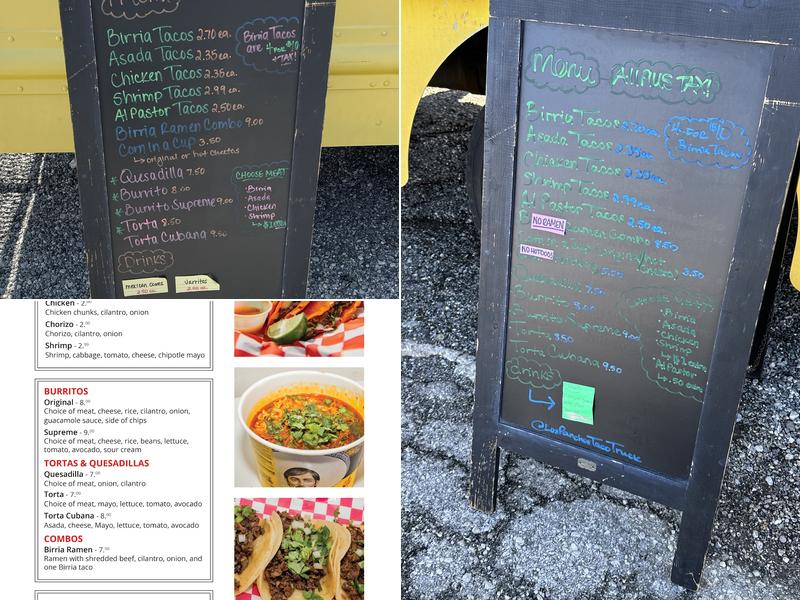 Menu
Birria Tacos 2.70 ea.
Asada Tacos 2.35 ea.
Chicken Tacos 2.35 ea.
Shrimp Tacos 2.99 ea.
Al Pastor Tacos 2.50 ea.
Birria Ramen Combo 9.00
Corn in a Cup 3.50
original or hot cheetos
* Quesadilla 7.50
* Burrito 8.00
* Burrito Supreme 9.00
* Torta 8.50
Torta Cubana 9.50
Drinks
Mexican Cokes
Jarritos
Birria Tacos
are 4 for $10
+ TAX!
CHOOSE MEAT
• Birria
• Asada
• Chicken
• Shrimp
Menu All PLUS TAX!
Birria Tacos
Asada Tacos 2.35 ea.
Chicken Tacos 2.35 ea.
Shrimp Tacos 2.99 ea.
Al Pastor Tacos 2.50 ea.
NO RAMEN
Ramen Combo 8.50
3.50
NO HOTDOGS
Quesadilla 7.50
Burrito 8.00
Burrito Supreme 9.00
Torta 8.50
Torta Cubana 9.50
Drinks
4 for $10
Birria Tacos
• Birria
• Asada
• Chicken
• Shrimp
• Al Pastor
.50 extra
@LosPanchosTacoTruck
Chicken - 2.
Chicken chunks, cilantro, onion
Chorizo - 2.
Chorizo, cilantro, onion
Shrimp - 2.
Shrimp, cabbage, tomato, cheese, chipotle mayo
BURRITOS
Original - 8.00
Choice of meat, cheese, rice, cilantro, onion,
guacamole sauce, side of chips
Supreme - 9.00
Choice of meat, cheese, rice, beans, lettuce,
tomato, avocado, sour cream
TORTAS & QUESADILLAS
Quesadilla - 7.00
Choice of meat, onion, cilantro
Torta - 7.00
Choice of meat, mayo, lettuce, tomato, avocado
Torta Cubana - 8.00
Asada, cheese, Mayo, lettuce, tomato, avocado
COMBOS
Birria Ramen - 7.00
Ramen with shredded beef, cilantro, onion, and
one Birria taco